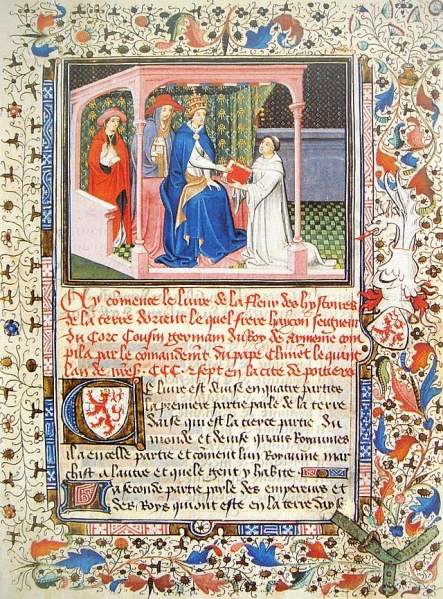 Cy comence le livre de la fleur des hystoires
de la terre dorient le quel frere haycon seigneur
du Corc Cousin germain du Roy de armenie com
pila par le comandemt du pape Climet le quint
lan de nre CCC 7 sept en la cite de poitiers
Ce livre est devise en quatre parties
la premiere partie parle de la terre
dasie qui est la tierce partie du
monde et devise quans Royaumes
il a en celle partie et coment lun Royaume mar
chist a lautre et quele gent y habite
La seconde partie parle des empereurs et
des Roys qui ont este en la terre dasie